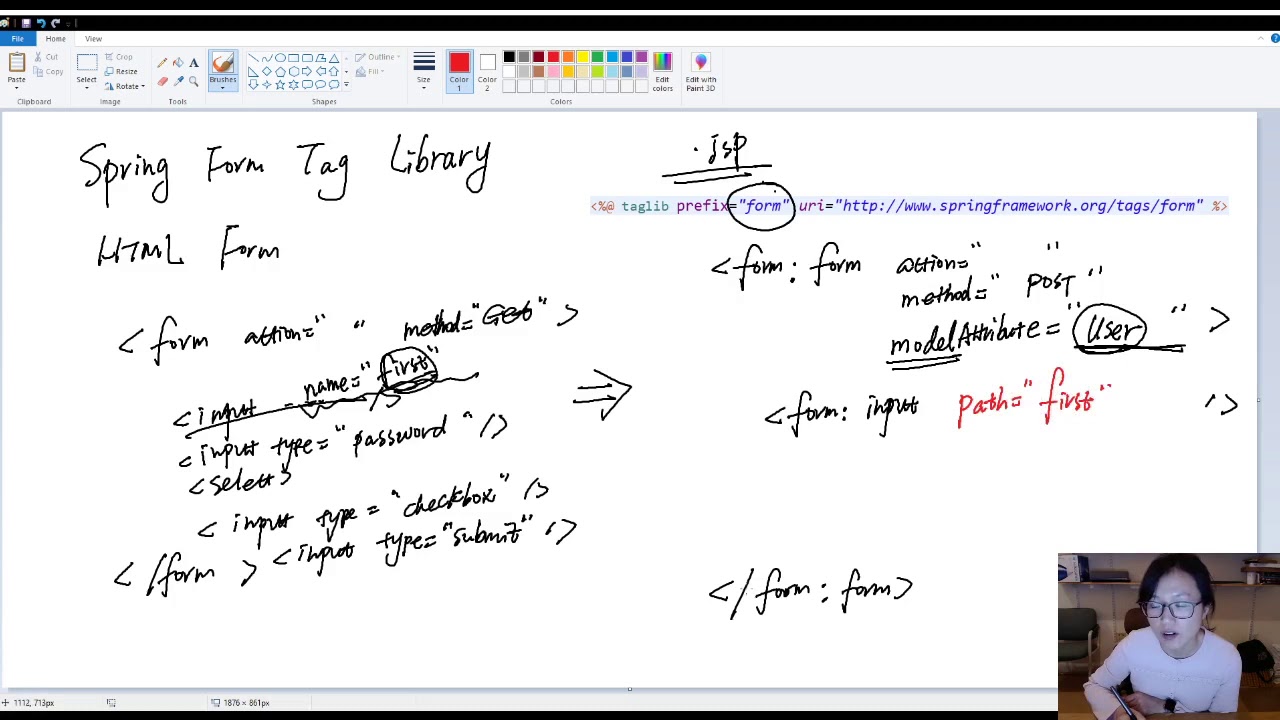 File Home View
Paste
Cut
Copy
Select
Crop
Resize
Rotate
A
Brushes
Outline
Fill
Size
Color 1
Color 2
Edit colors
Edit with Paint 3D
Clipboard Image Tools Shapes Colors
Spring Form Tag Library
HTML Form
<form action=" " method="Get" >
<input name="first" />
<input type="password" />
<select>
<input type="checkbox" />
<input type="submit" />
</form>
.jsp
<%@ taglib prefix="form" uri="http://www.springframework.org/tags/form" %>
<form: form action=" "
method=" POST "
modelAttribute="User " >
<form: input path="first" />
</form: form>
1112, 713px
1876 × 861px